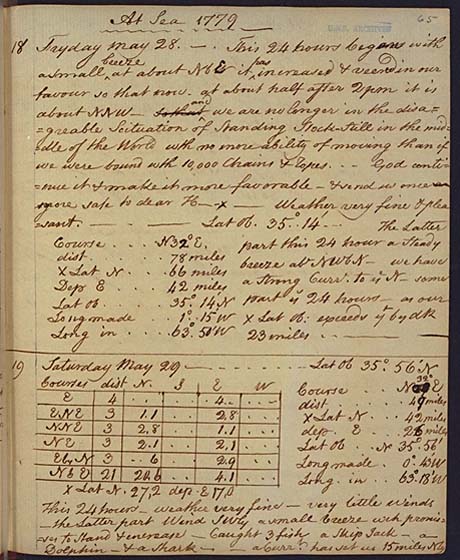 At Sea 1779
65
18 Fryday May 28. — This 24 hours begins with
a small breeze at about NbE it has increased & veerd in our
favour so that now at about half after 2 pm it is
about NNW — and we are no longer in the disa=
=greable Scituation of Standing Stock Still in the mid=
dle of the World with no more ability of moving than if
we were bound with 10,000 Chains & Ropes. . . . God conti=
=nue it & make it more favorable — & send us once
more safe to dear H— x — Weather very fine & plea
sant. — Lat Ob. 35°.14 — The Latter
Course . . . N32°E. part this 24 hour a Steady
dist. . . . 78 miles breeze at NWbN — we have
X Lat N. . 66 miles a Strong Curr.t to ye N — some
Dep E . . 42 miles part ye 24 hours — as our
Lat Ob. . . 35° 14 N X Lat Ob: exceeds yt by dk
Long made . 1°. 15 W 23 miles
Long in . . . 63° 51' W
19 Saturday May 29 — Lat Ob 35°. 56 N
Courses dist N. S E W
E 4 4
ENE 3 1.1 2.8
NNE 3 2.8 1.1
NE 3 2.1 2.1
EbN 3 . . 6 2.9
NbE 21 20.6 4.1
X Lat N. 27,2 dep E 17,0
Course . . . N 32° E
dist . . . miles
X Lat N . . 42 miles
dep. E . . 26 miles
Lat Ob . . N 35° 56'
Long made . 0°.
Long in . . 63°. 18' W
This 24 hours — weather very fine — very little winds
— the Latter part Wind SWly a small breeze with promis=
=es to Stand & encrease — Caught 3 fish a Skip Jack — a
Dolphin — & a Shark — a Curr.t has set us 15 miles N